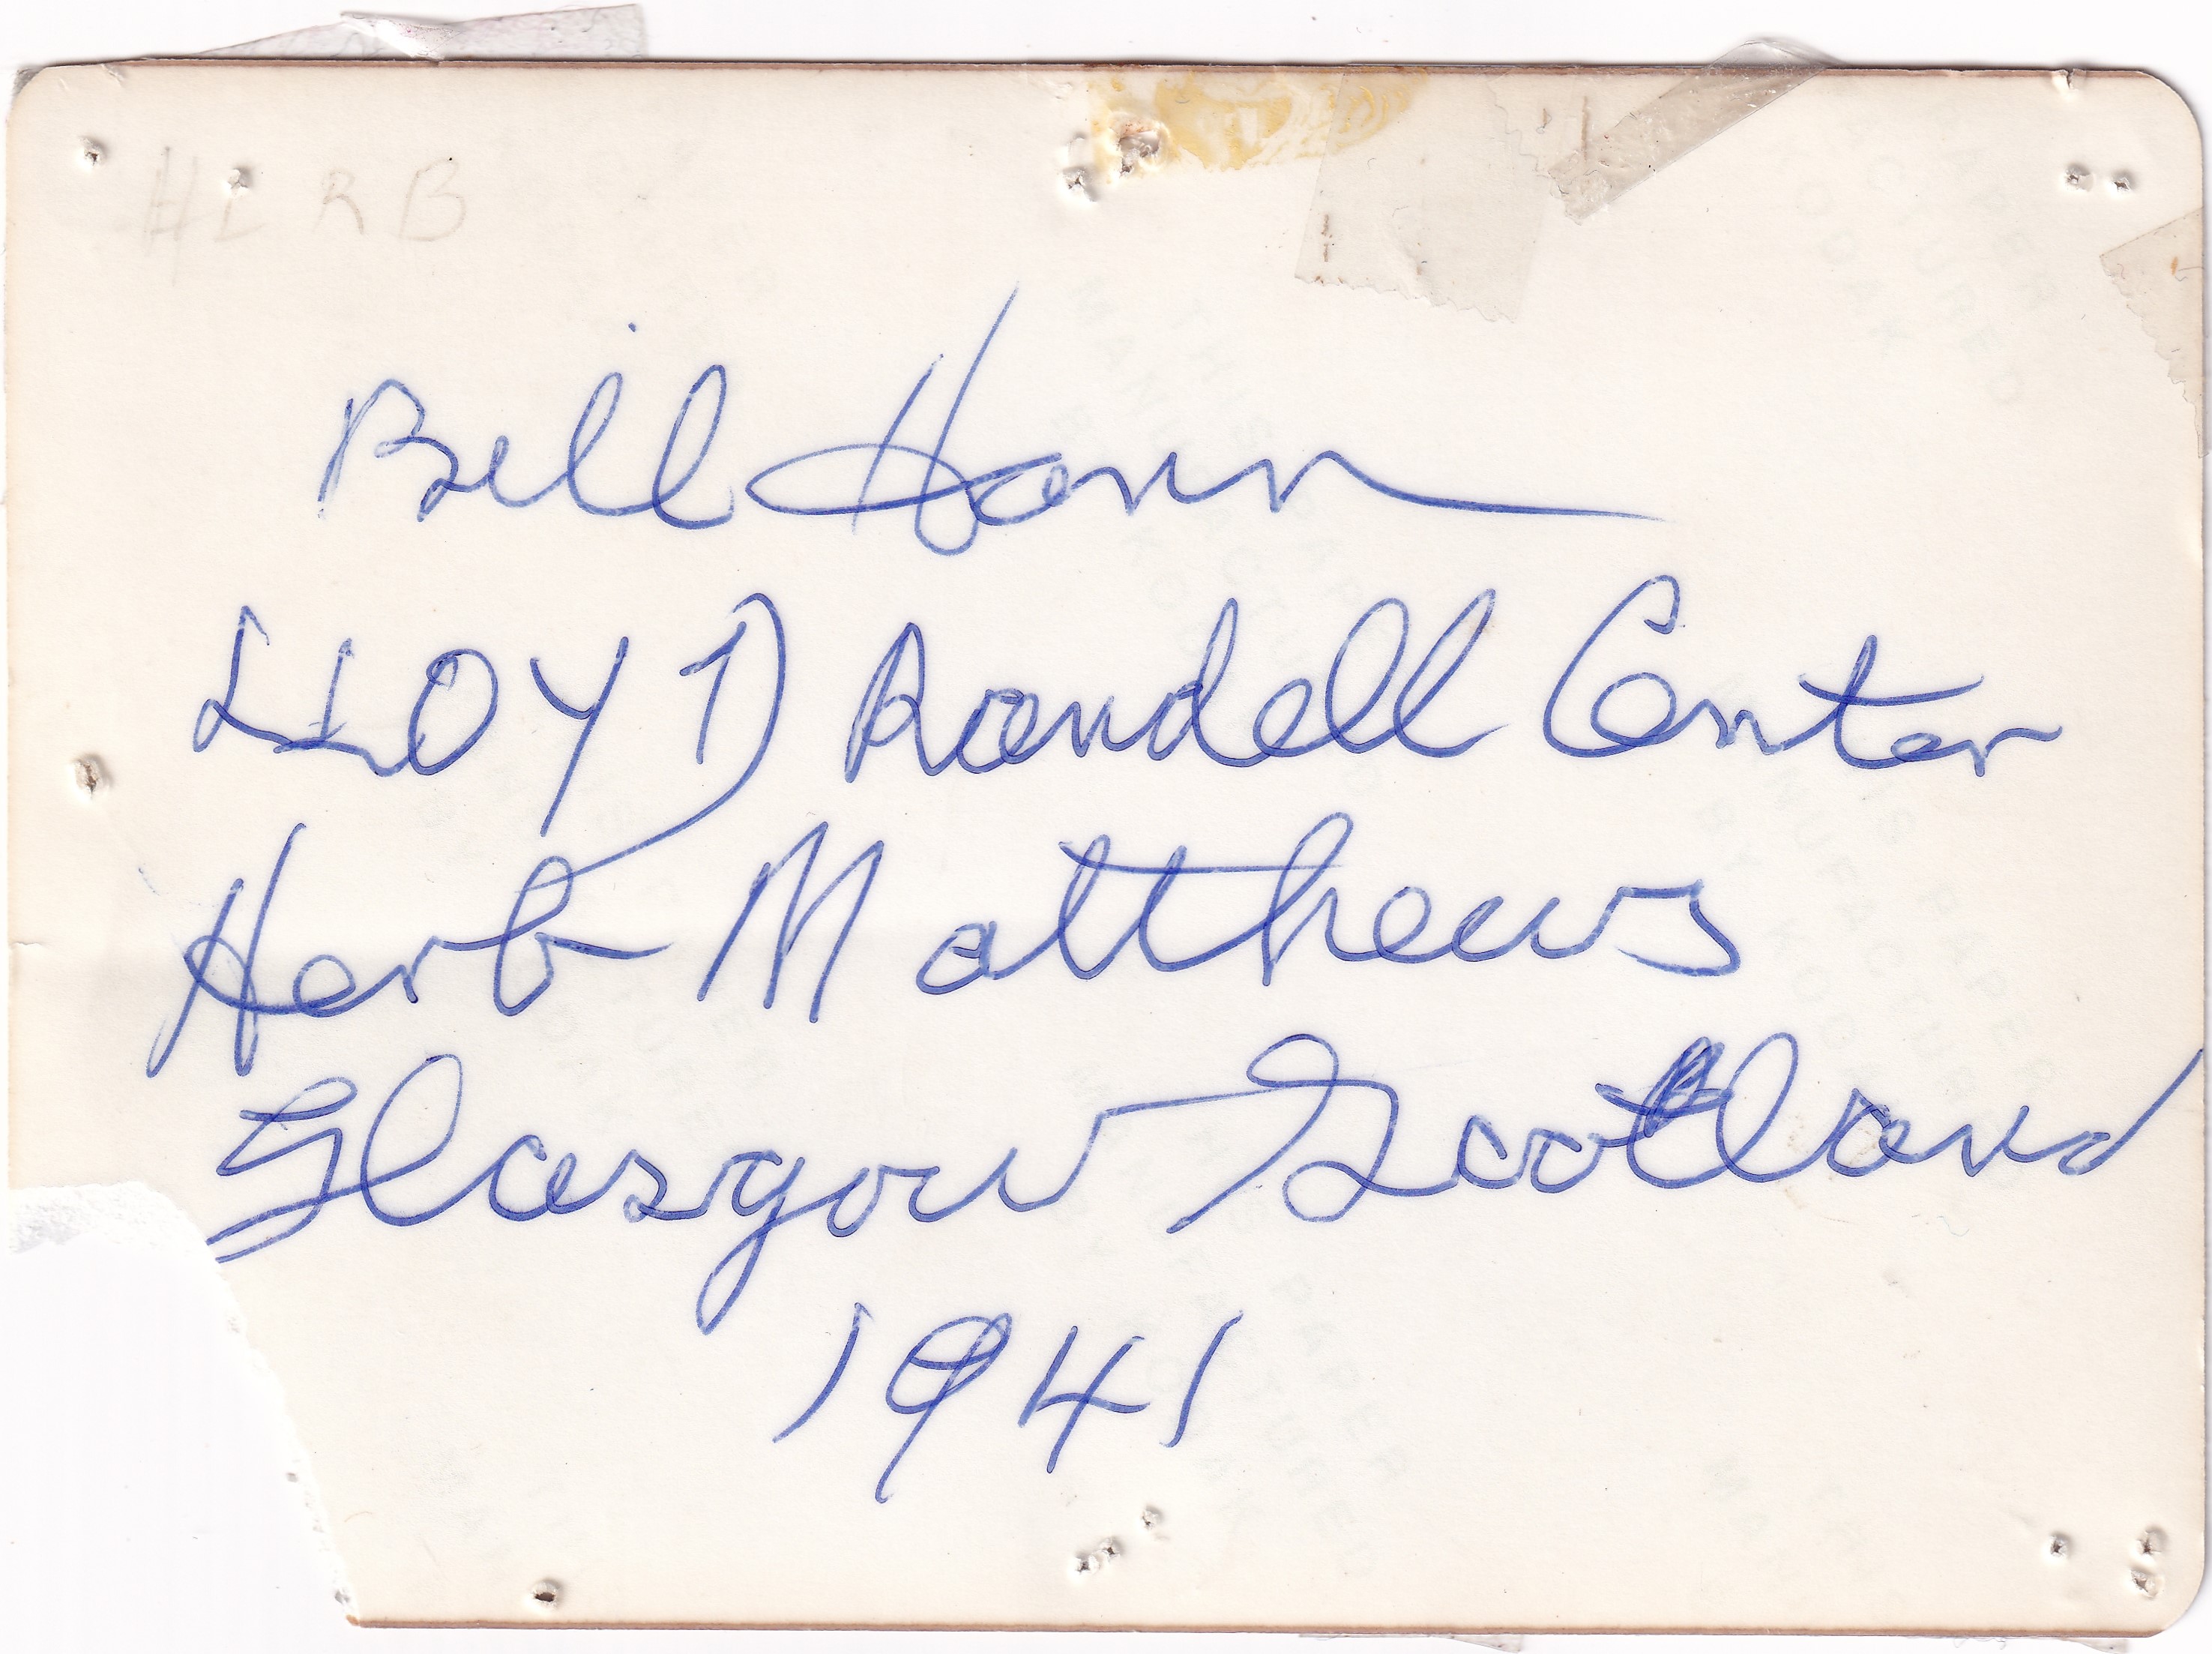 HERB
Bill Hann
LLOYD Randell Center
Herb Matthews
Glasgow Scotland
1941